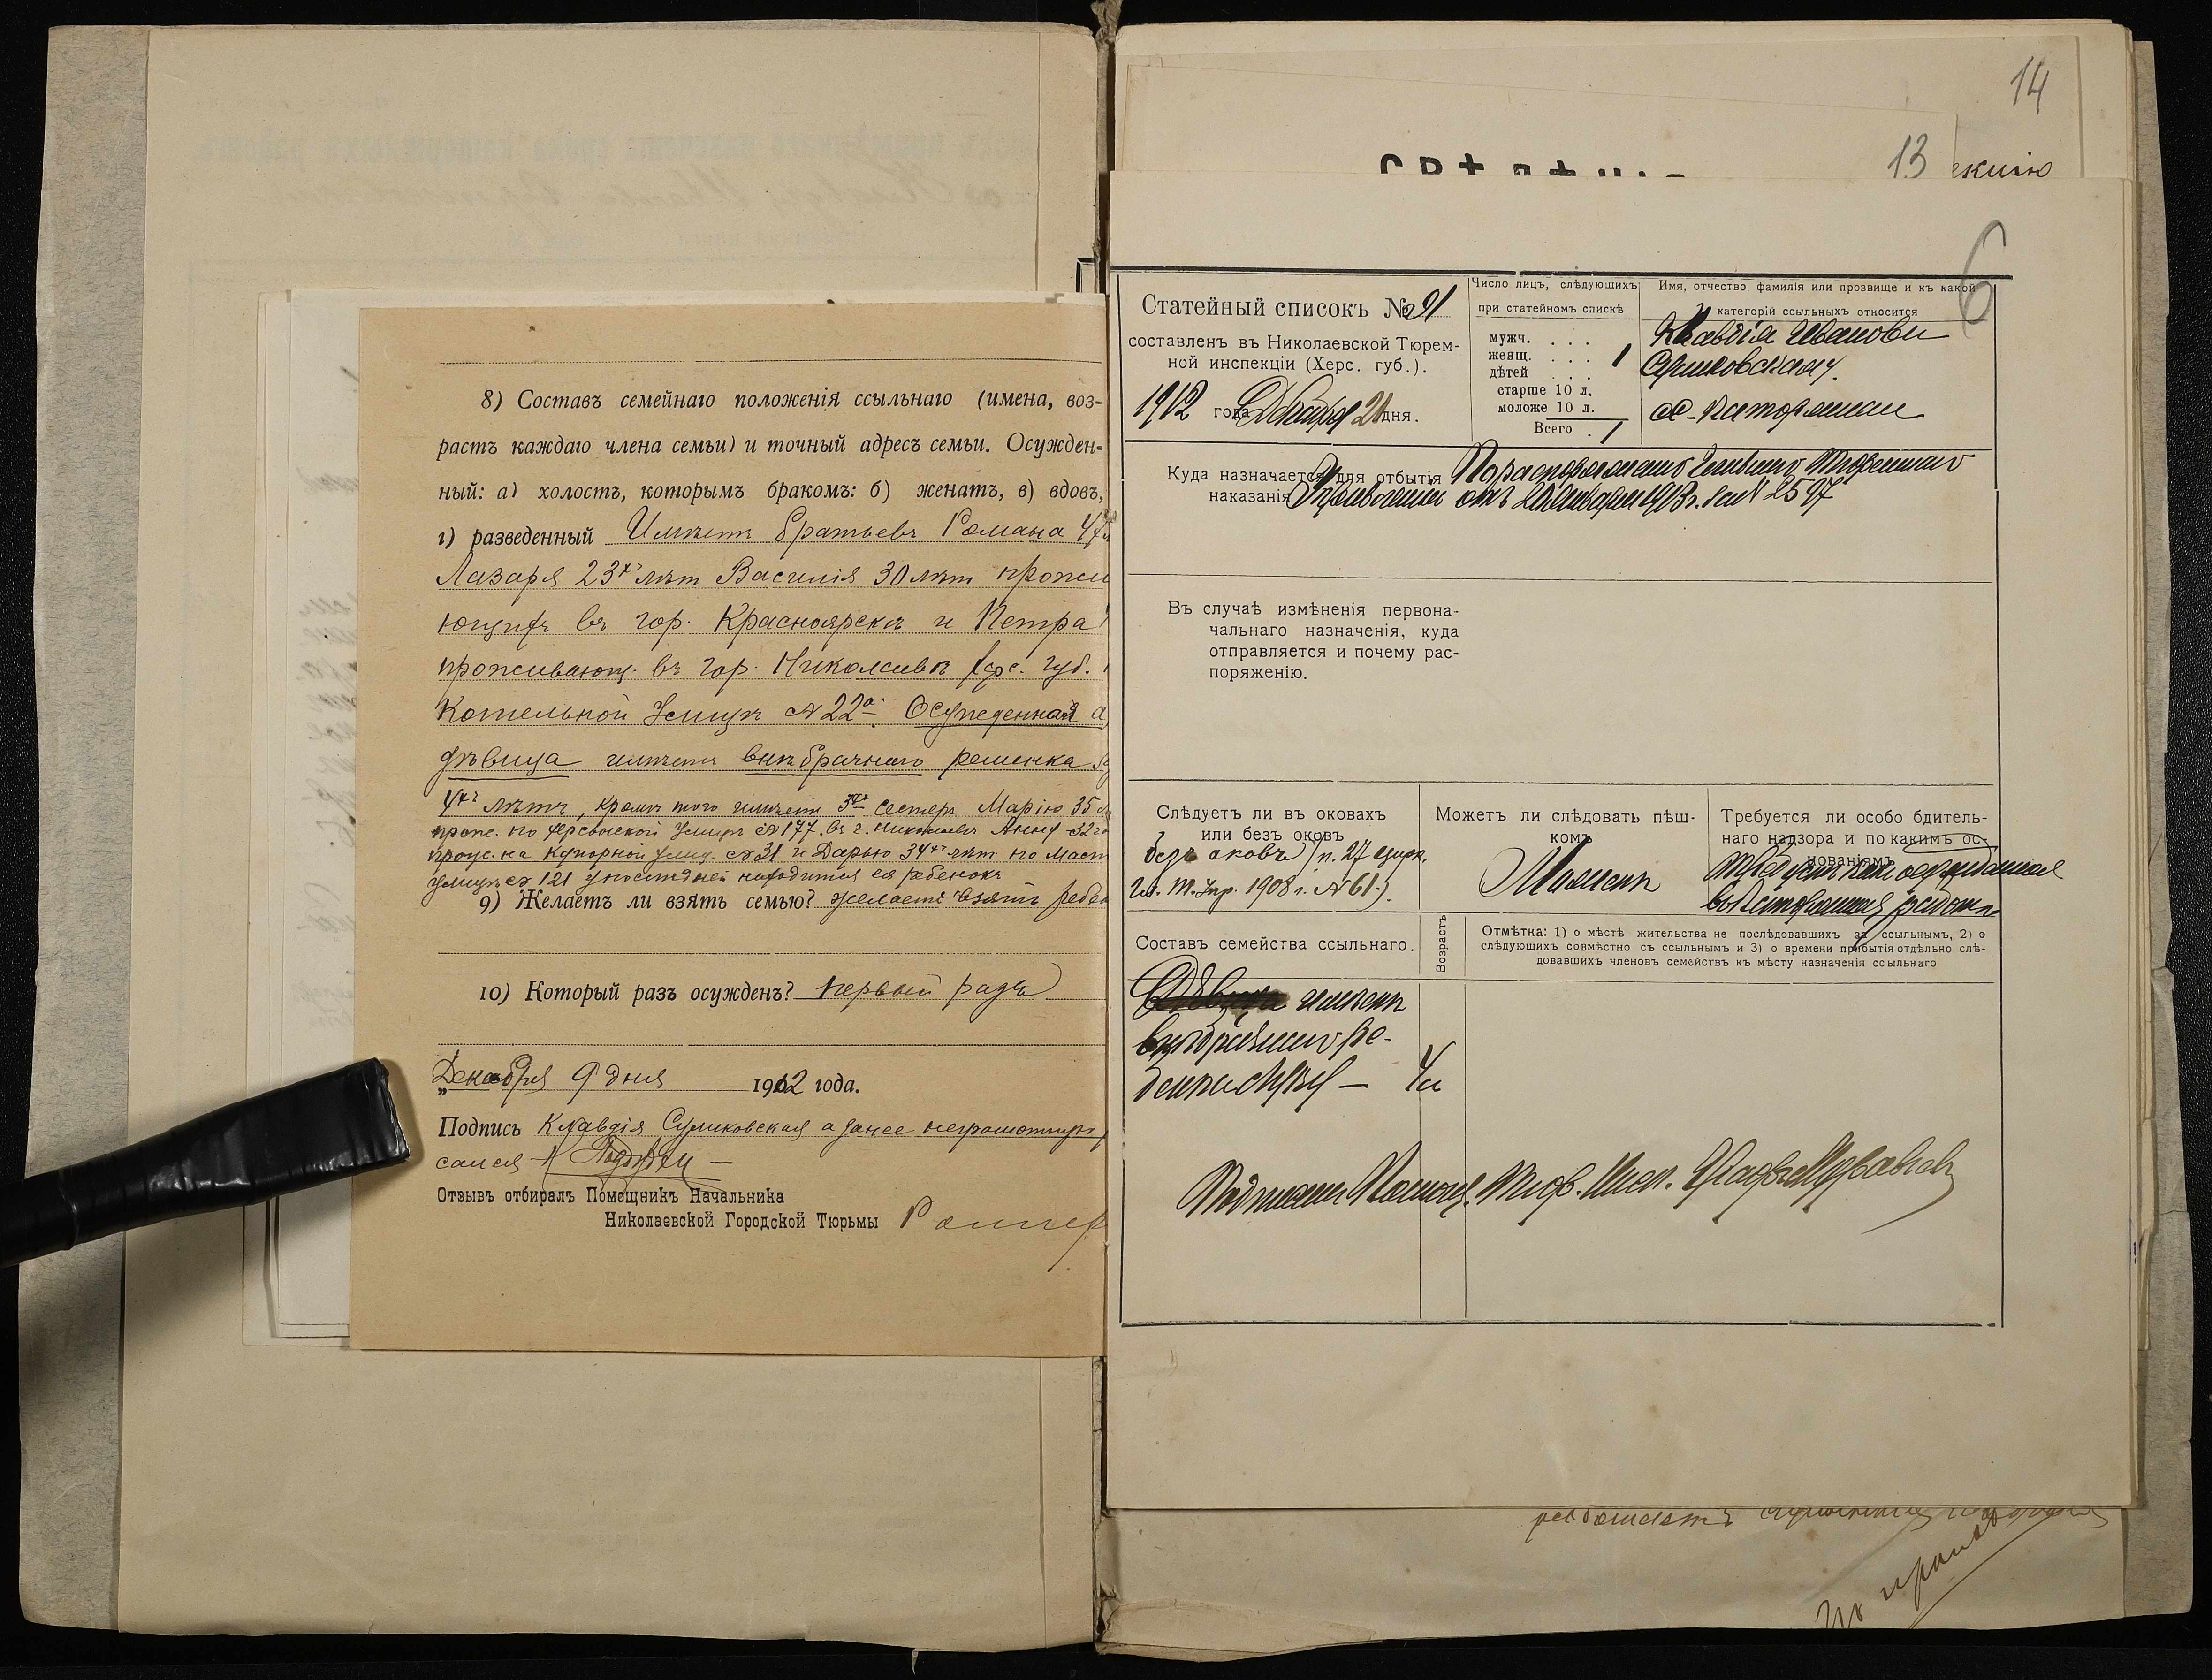 8) Составъ семейнаго положенія ссыльнаго (имена, воз-
растъ каждаго члена семьи) и точный адресъ семьи. Осужден-
ный: а) холостъ, которымъ бракомъ: б) женатъ, в) вдовъ,
г) разведенный Имѣетъ братьевъ Романа 47
Лазаря 23хъ лѣт Василія 30 лѣт прожи
ющихъ въ гор. Красноярскѣ и Петра
проживающ. въ гор. Николаевѣ Хрс. губ.
Котельной улицѣ № 22а. Осужденная
дѣвица имѣетъ внѣбрачнаго ребенка
4хъ лѣтъ, кромѣ того имѣетъ 3хъ сестеръ Марію 35
прож. по Херсонской улицѣ № 177 въ г. Николаевѣ Анну 32
прож. на Купорной улиц. № 31 и Дарью 34хъ лѣт по
улицѣ № 121 у послѣдней находится ея ребенокъ
9) Желаетъ ли взять семью? желаетъ взять
10) Который разъ осужденъ? первый разъ
„Декабря 9 дня 1912 года.
Подпись Клавдія Суликовская а за нее неграмотную
сался
Отзывъ отбиралъ Помощникъ Начальника
Николаевской Городской Тюрьмы
14
13
екцію
СВѢДѢНІЯ
6
Статейный списокъ № 91
составленъ въ Николаевской Тюрем-
ной инспекціи (Херс. губ.).
1912 года Декабря 21 дня.
Число лицъ, слѣдующихъ
при статейномъ спискѣ
мужч. . . .
женщ. . . . 1
дѣтей . . .
старше 10 л.
моложе 10 л.
Всего . 1
Имя, отчество фамилія или прозвище и къ какой
категорій ссыльныхъ относится
Клавдія Иванова
Суликовская
Куда назначается для отбытія
наказанія
По распоряженію Главнаго Тюремнаго
Управленія отъ 21 Января 1913 г. за № 2597
Въ случаѣ измѣненія первона-
чальнаго назначенія, куда
отправляется и почему рас-
поряженію.
Слѣдуетъ ли въ оковахъ
или безъ оковъ
безъ оковъ (п. 27 цирк.
Гл. Т. Упр. 1908 г. № 61.)
Можетъ ли слѣдовать пѣш-
комъ
Можетъ
Требуется ли особо бдитель-
наго надзора и по какимъ ос-
нованіямъ
Требуетъ какъ осужденная
въ каторжныя работы
Составъ семейства ссыльнаго.
Возрастъ
Отмѣтка: 1) о мѣстѣ жительства не послѣдовавшихъ за ссыльнымъ, 2) о
слѣдующихъ совмѣстно съ ссыльнымъ и 3) о времени прибытія отдѣльно слѣ-
довавшихъ членовъ семействъ къ мѣсту назначенія ссыльнаго
Дѣвица имѣетъ
внѣбрачнаго ре-
бенка 4
Подписалъ Помощ. Тюр. Инсп.